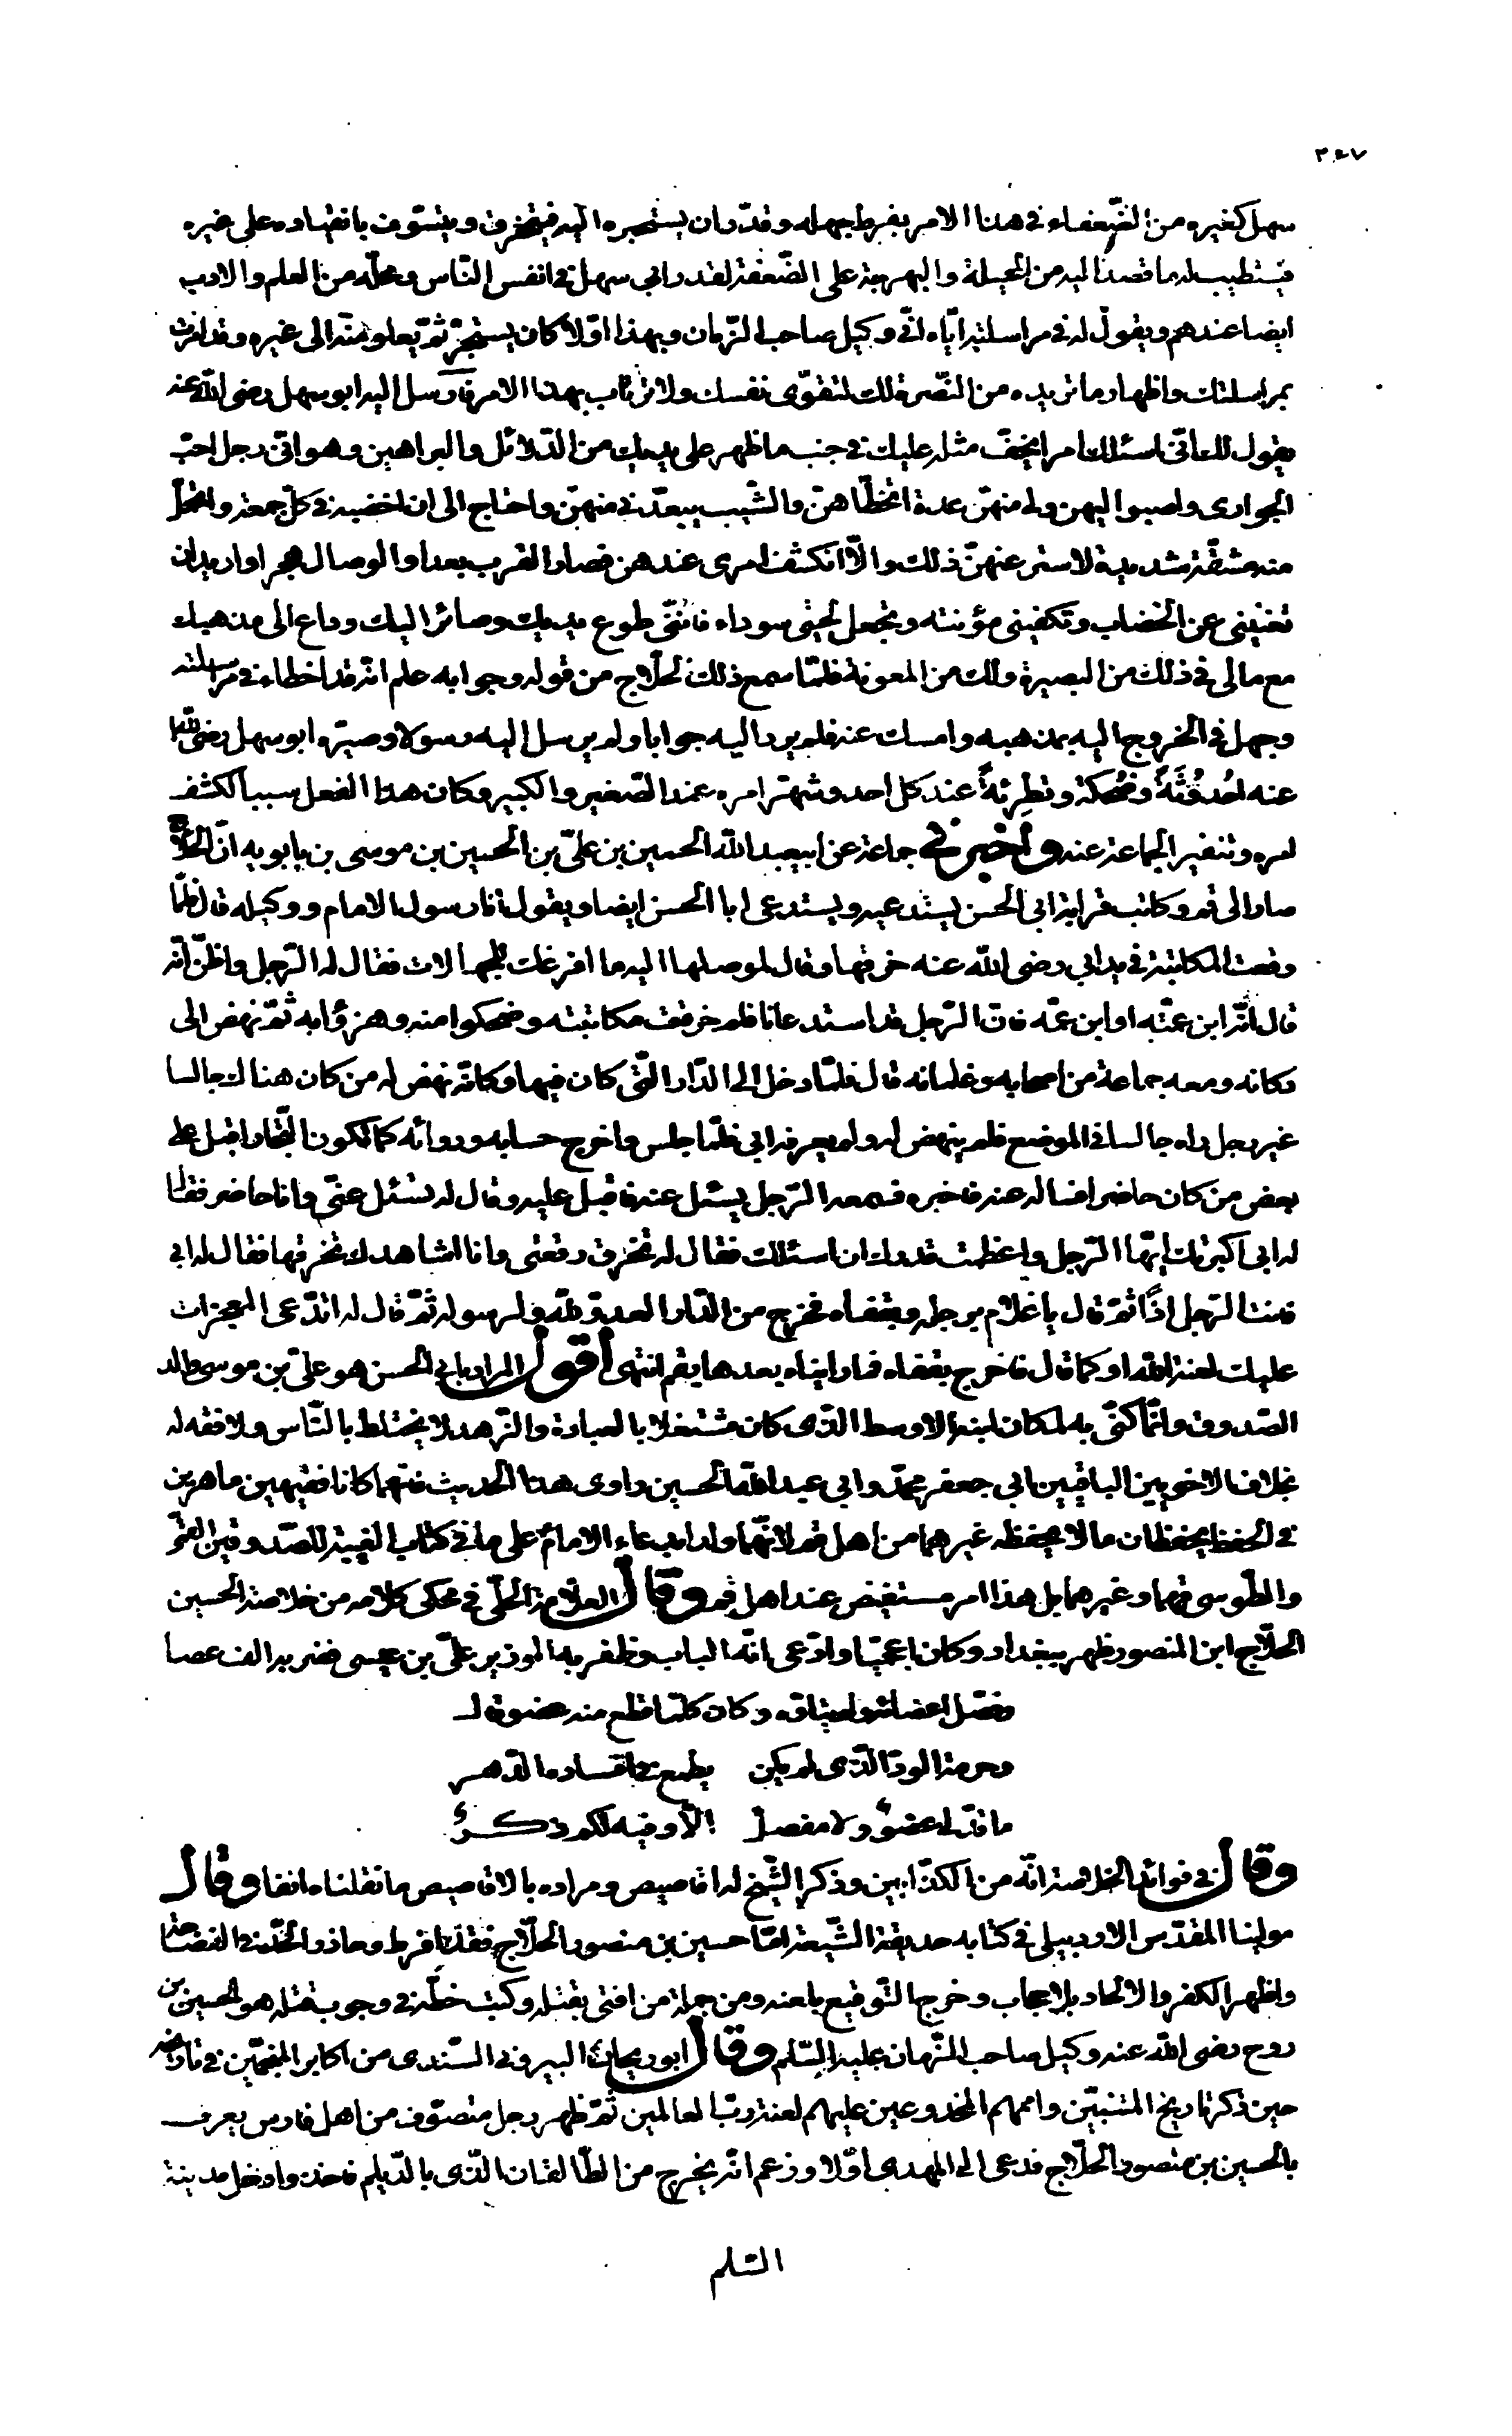 ٣٤٧
سهل كغيره من الضّعفاء فى هذا الامر بفرط جهله و قدّر ان يستجره اليه فيتمخرق و يتسوّف بانقياده على غيره
فيستطيب له ما قصد اليه من الحيلة و البهرجة على الضّعفة لقدر ابى سهل فى انفس النّاس و محلّه من العلم و الادب
ايضا عندهم و يقول له فى مراسلته ايّاه انّى وكيل صاحب الزّمان و بهذا اوّلا كان يستجرّ ثمّ يعلو منه الى غيره و قد امرت
بمراسلتك و اظهار ما تريده من النّصرة لك لتقوّى نفسك ولا ترتاب بهذا الامر فارسل اليه ابو سهل رضى اللّه عنه
يقول لك انّى اسئلك امرا يخفّ مثله عليك فى جنب ما ظهر على يديك من الدّلائل و البراهين و هو انّى رجل احبّ
الجوارى و اصبوا اليهن ولى منهنّ عدة اتخطّاهنّ و الشّيب يبعدّنى منهنّ و احتاج الى ان اخضبه فى كلّ جمعة و اتحمّل
منه مشقّة شديدة لاستر عنهنّ ذلك و الّا انكشف امرى عندهن فصار القرب بعدا و الوصال هجرا و اريد ان
تغنينى عن الخضاب و تكفينى مؤنته و تجعل لحيتى سوداء فانّنى طوع يديك و صائر اليك و داع الى مذهبك
مع مالى فى ذلك من البصيرة و لك من المعونة فلمّا سمع ذلك الحلّاج من قوله و جوابه علم انّه قد اخطاء فى مراسلته
و جهل فى الخروج اليه بمذهبه و امسك عنه فلم يرد اليه جوابا و لم يرسل اليه رسولا و صيّره ابو سهل رضى اللّه
عنه احُدوُثَةً و ضُحكة و نطِرئةً عند كل احد و شهّر امره عند الصّغير و الكبير و كان هذا الفعل سببا لكشف
امره و تنفير الجماعة عنه و اخبرنى جماعة عن ابيعبد اللّه الحسين بن علىّ بن الحسين بن موسى بن بابويه انّ الحلّاج
صار الى قم و كاتب قرابة ابى الحسن يستدعيه و يستدعى ابا الحسن ايضا و يقول انا رسول الامام و وكيله قال فلمّا
وقعت المكاتبة فى يد ابى رضى اللّه عنه خرقها و قال لموصلها اليه ما افرغك للجهالات فقال له الرّجل و اظنّ انّه
قال انّه ابن عمّته او ابن عمّه فانّ الرّجل قد استدعانا فلم خرقت مكاتبته و ضحكوا منه و هزؤا به ثمّ نهض الى
دكانه و معه جماعة من اصحابه و غلمانه قال فلمّا دخل الى الدّار الّتى كان فيها دكانه نهض له من كان هناك جالسا
غير رجل راه جالسا فى الموضع فلم ينهض له و لم يعرفه ابى فلمّا جلس و اخرج حسابه و دواته كما تكون التّجار اقبل على
بعض من كان حاضرا فساله عنه فاخبره فسمعه الرّجل يسئل عنه فاقبل عليه و قال له تسئل عنّى و انا حاضر فقال
له ابى اكبرتك ايّها الرّجل و اعظمت قدرك ان اسئلك فقال له تخرق رقعتى و انا اشاهدك تخرقها فقال له ابى
فانت الرّجل اذًا ثمّ قال يا غلام برجله و بقفاه فخرج من الدّار العدوّ للّه و لرسوله ثمّ قال له اتدّعى المعجزات
عليك لعنة اللّه او كما قال فاخرج بقفاه فما رايناه بعدها بقم انتهى اقول المراد بابى الحسن هو علىّ بن موسى والد
الصّدوق و انّما كنّى به لمكان ابنه الاوسط الذّى كان مشتغلا بالعبادة و الزّهد لا يختلط بالنّاس و لا فقه له
بخلاف الاخوين الباقيين ابى جعفر محمّد و ابى عبد اللّه الحسين راوى هذا الحديث فانّهما كانا فقيهين ماهرين
فى الحفظ يحفظان مالا يحفظه غيرهما من اهل قم لانّهما ولدا بدعاء الامام على ما فى كتاب الغيبة للصّدوقين القمّى
و الطّوسى فيهما و غيرهما بل هذا امر مستفيض عند اهل قم و قال العلّامة الحلّى فى محكى كلامه من خلاصة الحسين
الحلّاج ابن المنصور ظهر ببغداد و كان اعجميّا و ادّعى انّه الباب و ظفر به الوزير علىّ بن عيسى فضربه الف عصا
و فصّل اعضائه و لم يتاوّه و كان كلمّا قطع منه عضو قال
و حرمة الودّ الذّى لم يكن يطمع فى افساده الدّهر
ما قدّ لى عضوٌ و لا مفصل الّا و فيه لكم ذكرٌ
و قال فى فوائد الخلاصة انّه من الكذّابين و ذكر الشّيخ له اقاصيص و مراده بالاقاصيص ما نقلناه انفا و قال
مولينا المقدّس الاردبيلى فى كتابه حديقة الشّيعة امّا حسين بن منصور الحلّاج فقد افرط
و اظهر الكفر و الالحاد بلا حجاب و خرج التّوقيع بلعنه و من جملة من افتى بقتله و كتب خطّه فى وجوب قتله هو الحسين بن
روح رضى اللّه عنه وكيل صاحب الزّمان عليه السّلم و قال ابو ريحان البيرونى السّندى من اكابر المنجّمين فى تاريخه
حين ذكر تاريخ المتنبّين و اممهم المخدوعين عليهم لعنة ربّ العالمين ثمّ ظهر رجل متصوّف من اهل فارس يعرف
بالحسين بن منصور الحلّاج فدعى الى المهدى اوّلا و زعم انّه يخرج من الطّالقان الذّى بالدّيلم فاخذ و ادخل مدينة
السّلم